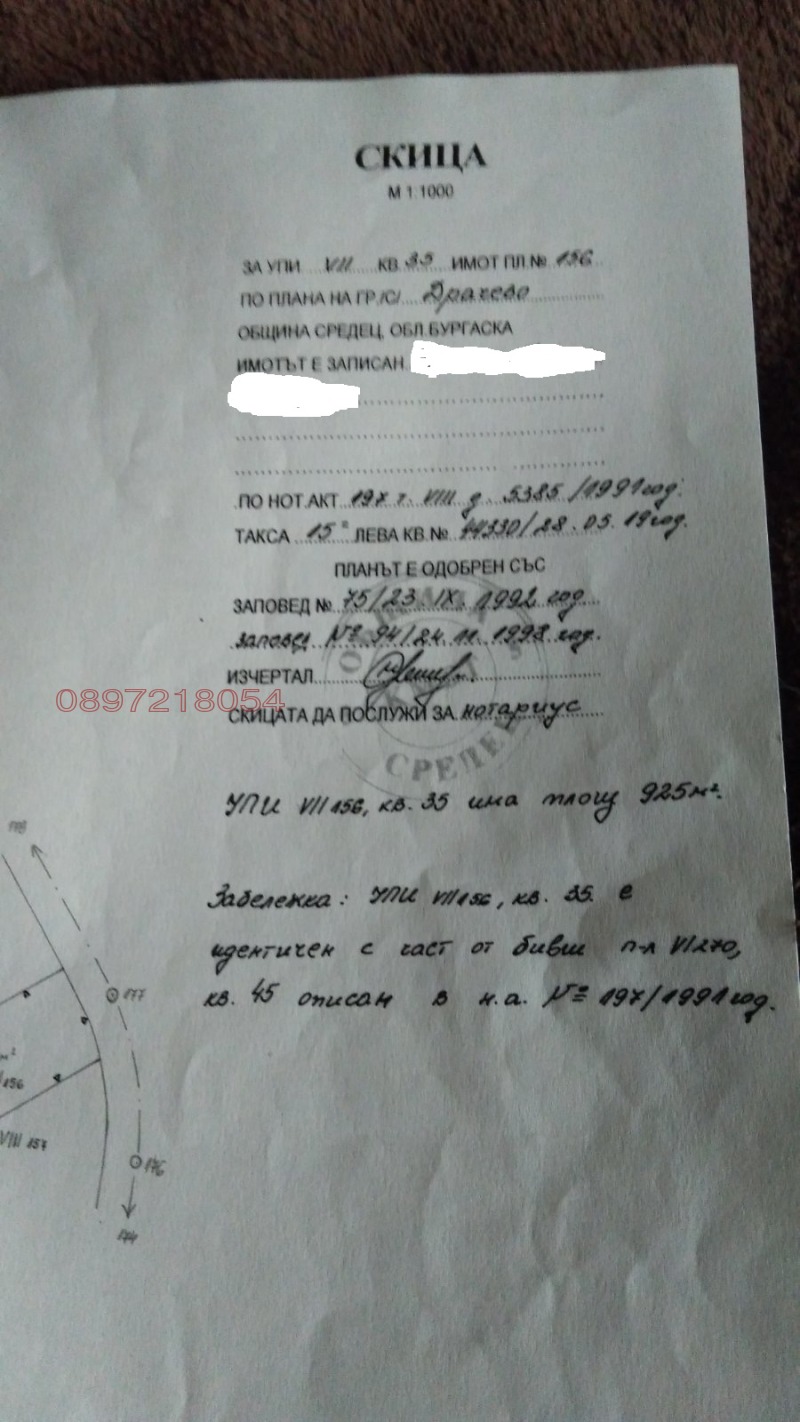 СКИЦА
М 1:1000
ЗА УПИ VII КВ 35 ИМОТ ПЛ.№ 156
ПО ПЛАНА НА ГР./С/ Драчево
ОБЩИНА СРЕДЕЦ, ОБЛ.БУРГАСКА
ИМОТЪТ Е ЗАПИСАН
ПО НОТ.АКТ 197 т. VIII д. 5385/1991 год.
ТАКСА 15 ЛЕВА КВ.№ 14330/28.05.19 год.
ПЛАНЪТ Е ОДОБРЕН СЪС
ЗАПОВЕД № 75/23.IX.1992 год
заповед № 94/24.11.1998 год.
ИЗЧЕРТАЛ
0897218054
СКИЦАТА ДА ПОСЛУЖИ ЗА нотариус
СРЕДЕЦ
УПИ VII 156, кв. 35 има площ 925 м².
Забележка: УПИ VII 156, кв. 35 е
идентичен с част от бивш п-л VI 270,
кв. 45 описан в н.а. № 197/1991 год.
177
м²
156
VIII 157
176
174